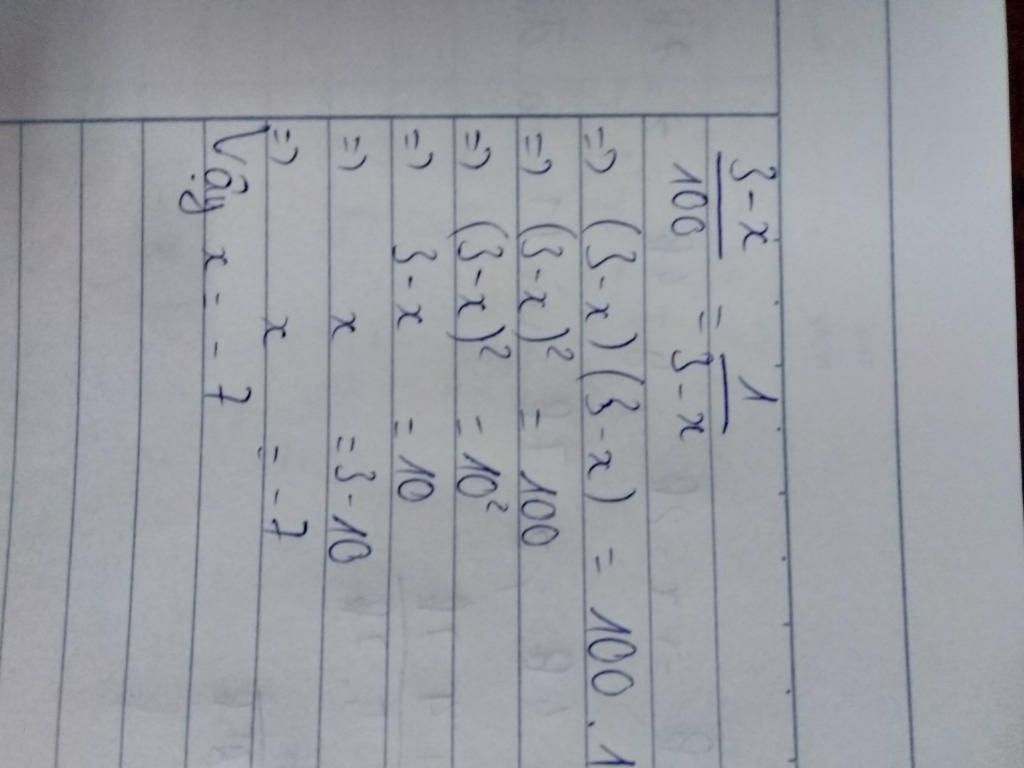 3-x/100 = 1/3-x
=> (3-x)(3-x) = 100.1
=> (3-x)² = 100
=> (3-x)² = 10²
=> 3-x = 10
=> x = 3-10
=> x = -7
Vậy x = -7